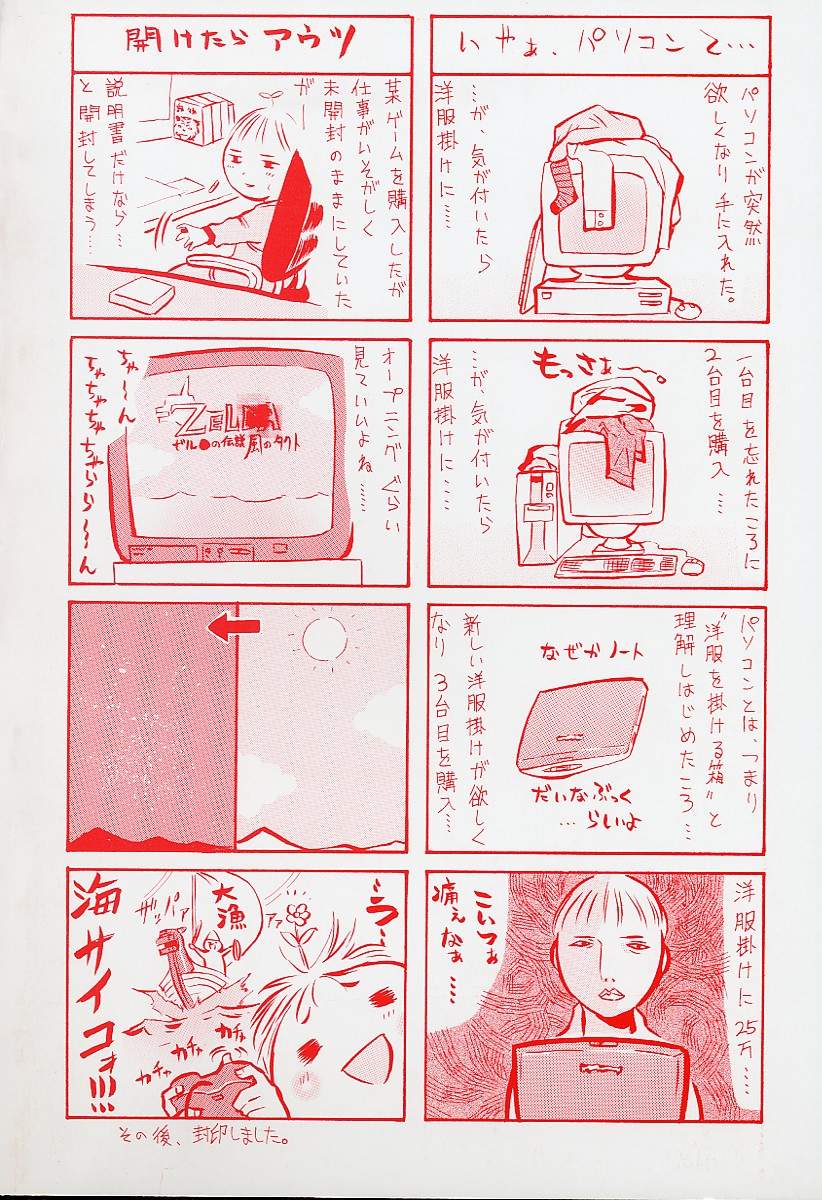 いやぁ、パソコンて…
パソコンが突然
欲しくなり手に入れた。
…が、気が付いたら
洋服掛けに……
1台目を忘れたころに
2台目を購入……
もっさぁ
…が、気が付いたら
洋服掛けに……
パソコンとは、つまり
"洋服を掛ける箱"と
理解しはじめたころ…
なぜかノート
だいなぶっく
…らいよ
新しい洋服掛けが欲しく
なり3台目を購入…
洋服掛けに25万……
こいつぁ
痛ぇなぁ…
開けたらアウツ
某ゲームを購入したが
仕事がいそがしく
未開封のままにしていた
がー
説明書だけなら…
と開封してしまう……
オープニングぐらい
見ていいよね……
ゼル●の伝説 風のタクト
ちゃ〜ん
ちゃちゃちゃちゃらら〜ん
大漁
ザッパァ
アァ
カチャ
カチャ
カチャ
海サイコォ!!!
その後、封印しました。